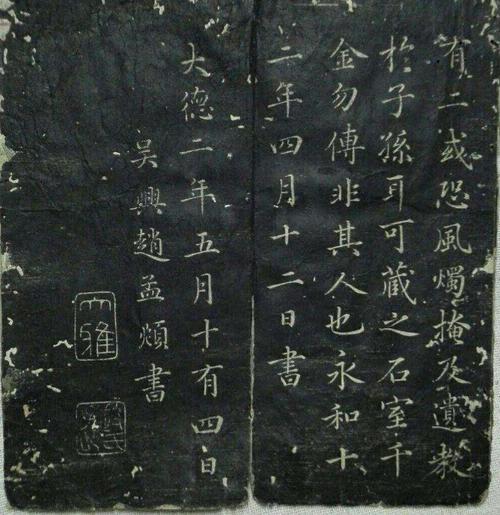 有二或恐風燭掩及遺教
於子孫耳可藏之石室千
金勿傳非其人也永和十
二年四月十二日書
大德二年五月十有四日
吳興趙孟頫書
大雅